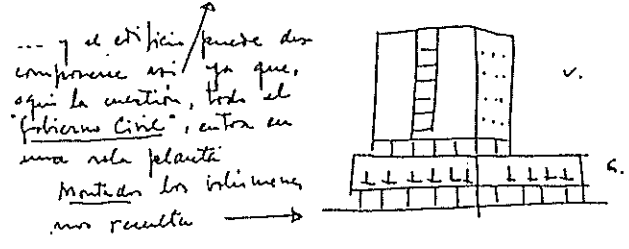 ... y el edificio puede des
componerse así ya que,
aquí la cuestión, todo el
"Gobierno Civil", entra en
una sola planta
Montados los volúmenes
nos resulta
V.
G.